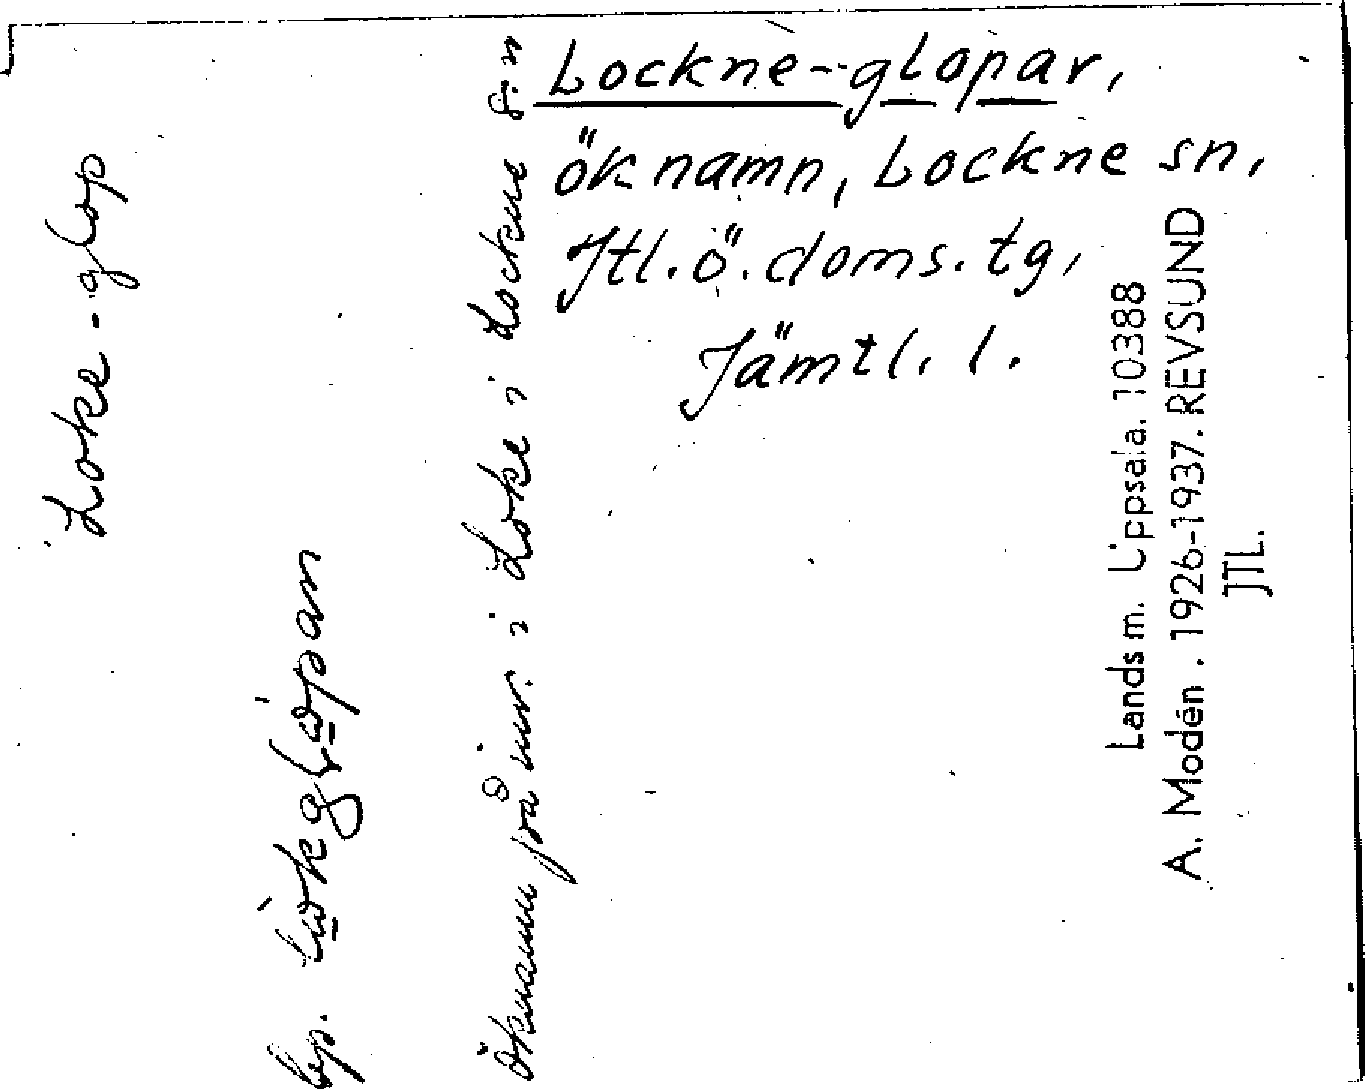 Lockne-glopar,
öknamn, Lockne sn,
Jtl. ö. doms. tg,
Jämtl. l.
Loke-glop
bp.
Öknamn på inv. i Loke i Lockne s:n
Landsm. Uppsala. 10388
A. Modén. 1926-1937. REVSUND
JTL.